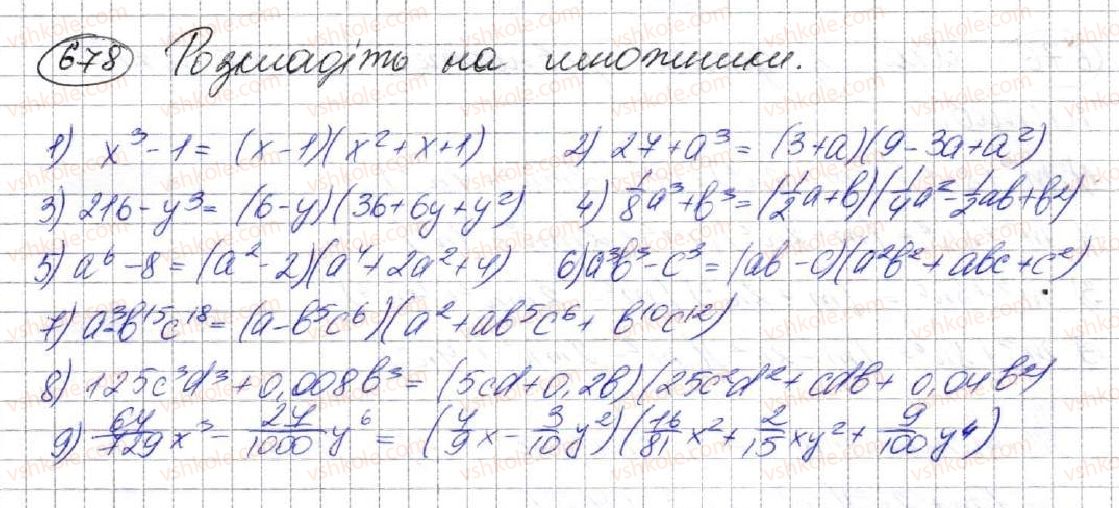 678 Розкладіть на множники.
1) x³ - 1 = (x - 1)(x² + x + 1) 2) 27 + a³ = (3 + a)(9 - 3a + a²)
3) 216 - y³ = (6 - y)(36 + 6y + y²) 4) 1/8a³ + b³ = (1/2a + b)(1/4a² - 1/2ab + b²)
5) a⁶ - 8 = (a² - 2)(a⁴ + 2a² + 4) 6) a³b³ - c³ = (ab - c)(a²b² + abc + c²)
7) a³ - b¹⁵c¹⁸ = (a - b⁵c⁶)(a² + ab⁵c⁶ + b¹⁰c¹²)
8) 125c³d³ + 0,008b³ = (5cd + 0,2b)(25c²d² + cdb + 0,04b²)
9) 64/729 x³ - 27/1000 y⁶ = (4/9 x - 3/10 y²)(16/81 x² + 2/15 xy² + 9/100 y⁴)